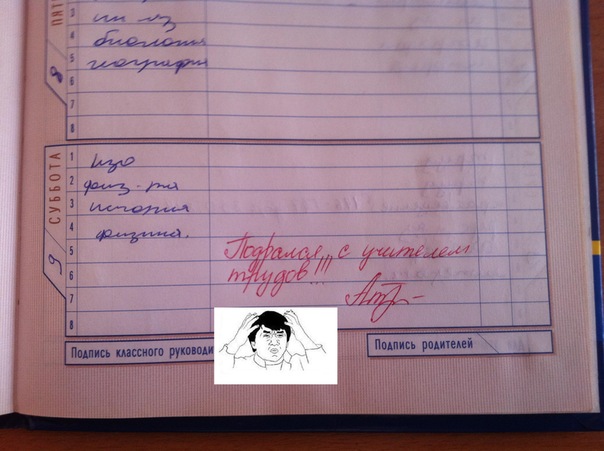 ПЯТ
3 ин яз
4 биология
5 география
6
7
8
8
СУББОТА
9
1 изо
2 физ-ра
3 история
4 физика.
5 Подрался с учителем
6 трудов!!!
7
8
Подпись классного руководи
Подпись родителей